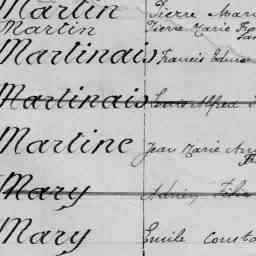 Martin Pierre Mari
Martin Pierre Marie Fra
Martinais Francis Edmon
Martinais Louis Alfred
Martine Jean Marie
Mary Adrien Félix
Mary Emile Consta